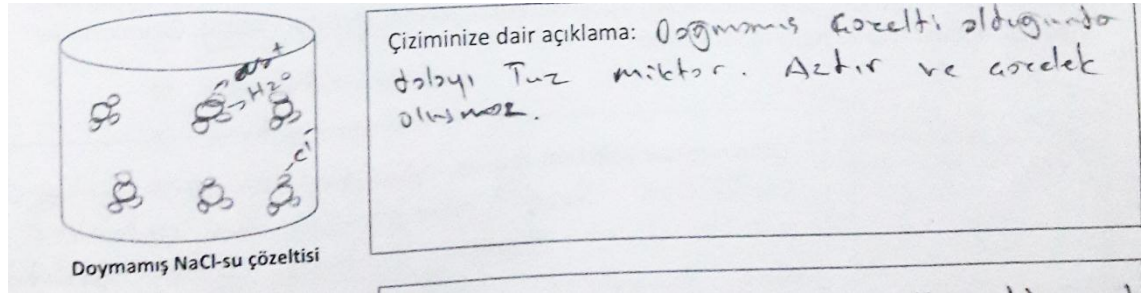 Na+
H2O
Cl-
Doymamış NaCl-su çözeltisi
Çiziminize dair açıklama: Doğmamış çözelti olduğundan
dolayı Tuz miktar. Aztır ve çözelek
oluşmaz.